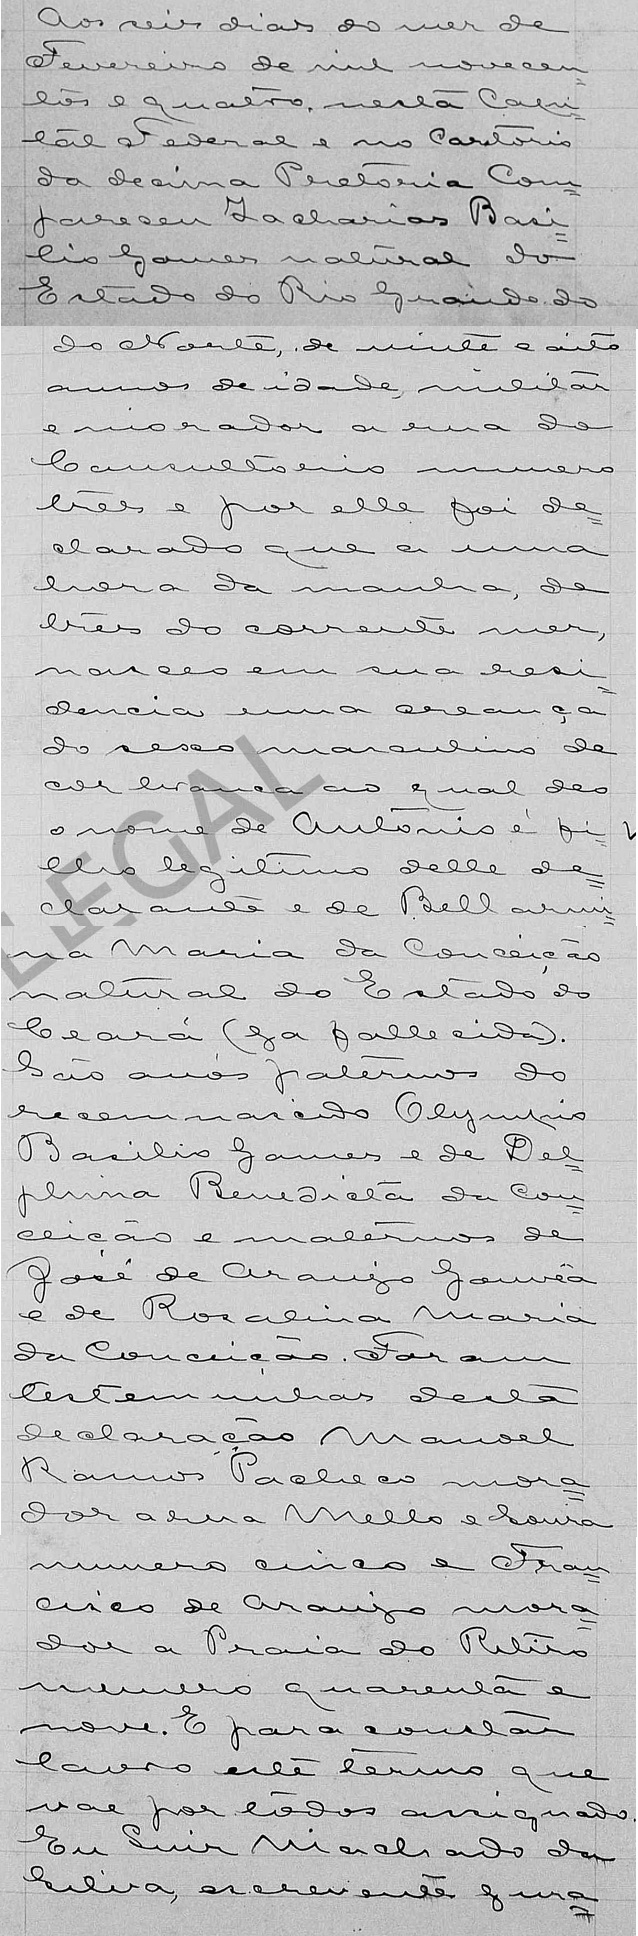 Aos seis dias do mez de
Fevereiro de mil novecen=
tos e quatro, nesta Capi=
tal Federal e no Cartorio
da decima Pretoria Com=
pareseu Zacharias Basi=
lio Gomes natural do
Estado do Rio Grande do
do Norte, de vinte e oito
annos de idade, militar
e morador a rua do
Consultorio numero
tres e por elle foi de=
clarado que a uma
hora da manha, de
tres do corrente mez,
nasceo em sua resi=
dencia uma creança
do sexo masculino de
cor branca ao qual deo
o nome de Antonio é fi=
lho legitimo delle de=
clarante e de Bellarmi=
na Maria da Conceição
natural do Estado do
Ceará (ja fallecida).
São avós paternos do
recemnascido Olympio
Basilio Gomes e de Del=
phina Benedicta da Con=
ceição e maternos de
José de Araujo Gouvêa
e de Rosalina Maria
da Conceição. Foram
testemunhas desta
declaração Manoel
Ramos Pacheco mora=
dor a rua Mello e Souza
numero cinco e Fran=
cisco de Araujo mora=
dor a Praia do Retiro
numero quarenta e
nove. E para constar
lavro este termo que
vae por todos assignado.
Eu Luiz Machado da
Silva, escrevente jura=
LEGAL